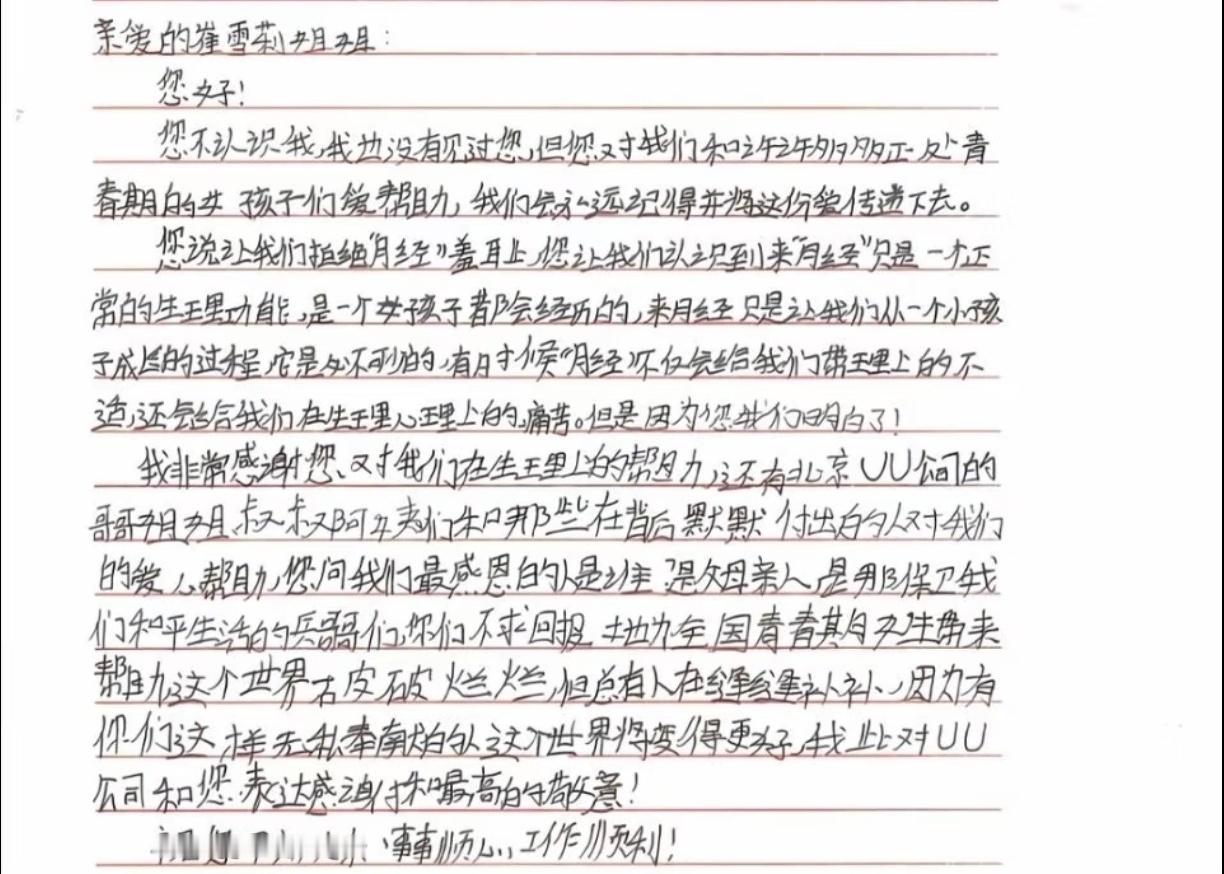 亲爱的崔雪莉姐姐:
您好!
您不认识我,我也没有见过您,但您对我们和许许多多正处青
春期的女孩子们爱帮助,我们会永远记得并将这份爱传递下去。
您说让我们拒绝"月经"羞耻,您让我们认识到来"月经"只是一个正
常的生理功能,是一个女孩子都会经历的,来月经只是让我们从一个小孩
子成长的过程,它是必不可少的,有时候"月经"不仅会给我们带理上的不
适,还会给我们在生理心理上的痛苦。但是因为您我们明白了!
我非常感谢您、对我们在生理上的帮助,还有北京UU公司的
哥哥姐姐、叔叔阿姨们和那些在背后默默付出的人对我们
的爱心帮助,您问我们最感恩的人是谁是父母亲人,是那保卫我
们和平生活的兵哥哥们,你们不求回报 地为全国青春期女生带来
帮助,这个世界破破烂烂,但总有人在缝缝补补,因为有
你们这样无私奉献的人这个世界将变得更好,我此对UU
公司和您表达感谢和最高的敬意!
祝您 事事顺心,工作顺利!